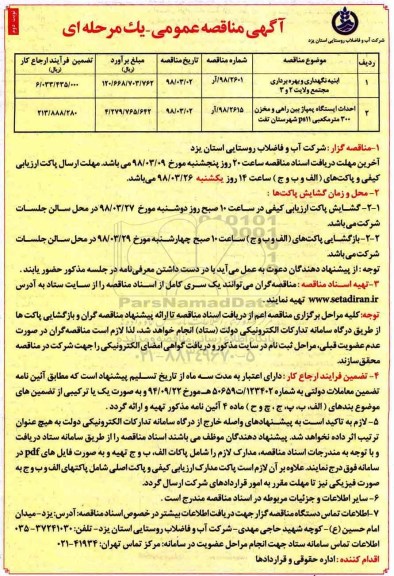 آگهی مناقصه عمومی - یک مرحله ای
شرکت آب و فاضلاب روستایی استان یزد
ردیف موضوع مناقصه شماره مناقصه تاریخ مناقصه مبلغ برآورد (ریال) تضمین فرآیند ارجاع کار (ریال)
۱ ابنیه نگهداری و بهره برداری مجتمع ولایت ۲ و ۳ ۹۸/۲۶۰۱/آر ۹۸/۰۳/۰۲ ۱۲۰/۶۶۸/۷۰۳/۷۶۲ ۶/۰۳۳/۴۳۵/۰۰۰
۲ احداث ایستگاه پمپاژ بین راهی و مخزن ۳۰۰ مترمکعبی ps11 شهرستان تفت ۹۸/۲۶۱۵/آر ۹۸/۰۳/۰۲ ۴/۲۷۹/۷۶۵/۶۴۲ ۲۱۳/۸۸۸/۲۸۰
۱-مناقصه گزار : شرکت آب و فاضلاب روستایی استان یزد
آخرین مهلت دریافت اسناد مناقصه ساعت ۲۰ روز پنجشنبه مورخ ۹۸/۰۳/۰۹ می باشد. مهلت ارسال پاکت ارزیابی
کیفی و پاکت‌های ( الف و ب و ج ) ساعت ۱۴ روز یکشنبه ۹۸/۰۳/۲۶ می باشد.
۲- محل و زمان گشایش پاکت‌ها :
۱-۲- گشایش پاکت ارزیابی کیفی در ساعت ۱۰ صبح روز دوشنبه مورخ ۹۸/۰۳/۲۷ در محل سالن جلسات
شرکت می‌باشد.
۲-۲- بازگشایی پاکت‌های ( الف و ب و ج ) ساعت ۱۰ صبح چهارشنبه مورخ ۹۸/۰۳/۲۹ در محل سالن جلسات
شرکت می‌باشد.
توجه : از پیشنهاد دهندگان دعوت به عمل می‌آید با در دست داشتن معرفی‌نامه در جلسه مذکور حضور یابند .
۳-تهیه اسناد مناقصه : مناقصه گران می توانند یک سری کامل از اسناد مناقصه را از سایت ستاد به آدرس
www.setadiran.ir تهیه نمایند.
توجه: کلیه مراحل برگزاری مناقصه اعم از دریافت اسناد مناقصه تا ارائه پیشنهاد مناقصه گران و بازگشایی پاکت ها
از طریق درگاه سامانه تدارکات الکترونیکی دولت (ستاد) انجام خواهد شد. لذا لازم است مناقصه گران در صورت
عدم عضویت قبلی، مراحل ثبت نام در سایت مذکور و دریافت گواهی امضای الکترونیکی را جهت شرکت در مناقصه
محقق سازند.
۴- تضمین فرایند ارجاع کار : دارای اعتبار به مدت سه ماه از تاریخ تسلیم پیشنهاد است که مطابق آئین نامه
تضمین معاملات دولتی به شماره ۱۲۳۴۰۲/ت۵۰۶۵۹هـ مورخ ۹۴/۰۹/۲۲ و به صورت یک یا ترکیبی از تضمین های
موضوع بندهای ( الف، ب، پ، ج، چ و ح ) ماده ۴ آئین نامه مذکور تهیه و ارائه گردد .
۵- لازم به تاکید است به پیشنهادهای واصله خارج از درگاه سامانه تدارکات الکترونیکی دولت به هیچ عنوان
ترتیب اثر داده نخواهد شد. پیشنهاد دهندگان موظف می باشند اسناد مناقصه را از طریق سامانه ستاد دریافت
و با توجه به مندرجات اسناد مناقصه، مدارک لازم را شامل پاکات الف، ب و ج تهیه و به صورت فایل های pdf در
سامانه فوق درج نمایند. علاوه بر آن لازم است پاکت مدارک ارزیابی کیفی و پاکت اصلی شامل پاکتهای الف و ب و ج به
صورت فیزیکی نیز تا مهلت مقرر به امور قراردادهای شرکت ارسال گردد.
۶- سایر اطلاعات و جزئیات مربوطه در اسناد مناقصه مندرج است .
۷-اطلاعات تماس دستگاه مناقصه گزار جهت دریافت اطلاعات بیشتر در خصوص اسناد مناقصه: آدرس: یزد- میدان
امام حسین (ع)- کوچه شهید حاجی مهدی- شرکت آب و فاضلاب روستایی استان یزد- تلفن: ۳۷۲۴۱۰۳۰-۰۳۵
اطلاعات تماس سامانه ستاد جهت انجام مراحل عضویت در سامانه: مرکز تماس تهران: ۴۱۹۳۴-۰۲۱
اقدام کننده : اداره حقوقی و قراردادها
ParsNamadData
۰۲۱-۸۸۳۴۹۶۷۰-۵